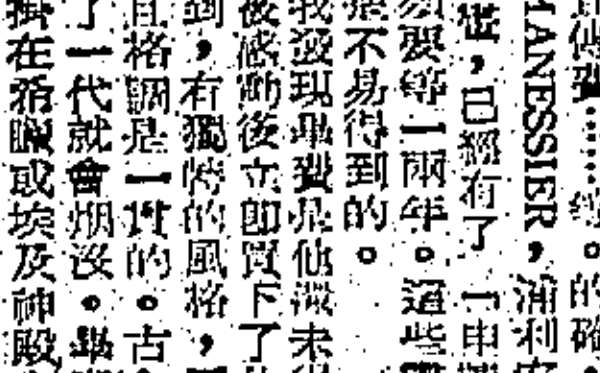 的確,
MANESSIER,浦利
,已經有了一串
須要等一兩年。這些
是不易得到的。
我發現畢費是他還未
被感動後立即買下了
到,有獨特的風格,
且格調是一貫的。古
了一代就會烟沒。畢
掛在希臘或埃及神殿